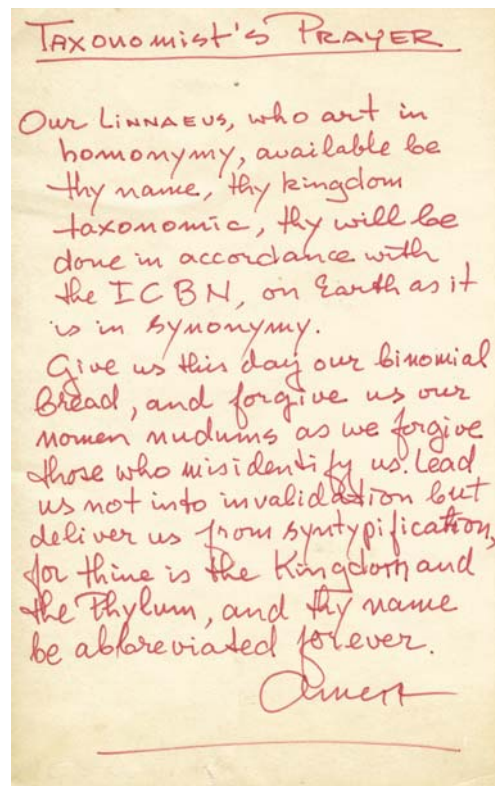 TAXONOMIST'S PRAYER
Our LINNAEUS, who art in
homonymy, available be
thy name, thy kingdom
taxonomic, thy will be
done in accordance with
the ICBN, on Earth as it
is in synonymy.
Give us this day our binomial
bread, and forgive us our
nomen nudums as we forgive
those who misidentify us. Lead
us not into invalidation but
deliver us from syntypification,
for thine is the Kingdom and
the Phylum, and thy name
be abbreviated forever.